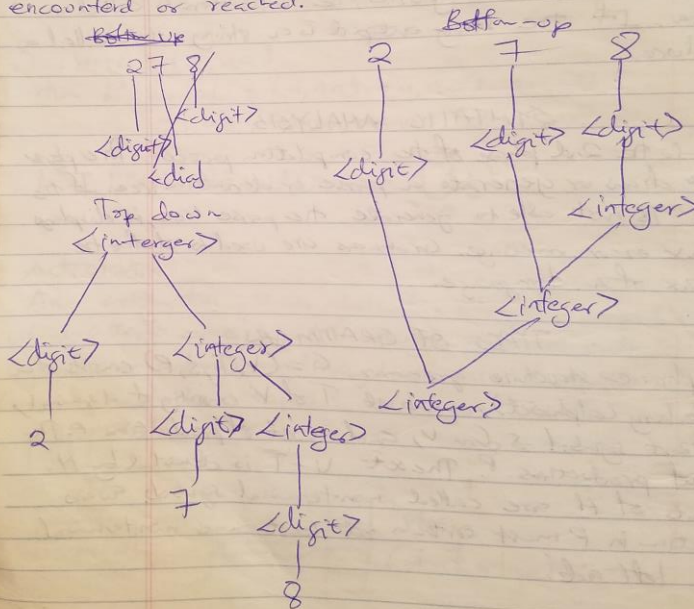 encounterd or reached.
Bottom up
2 7 8
<digit>
<digit>
<digi
Top down
<interger>
<digit> <integer>
2
<digit> <integer>
7
<digit>
8
Bottom-up
2 7 8
<digit> <digit> <digit>
<integer>
<integer>
<integer>